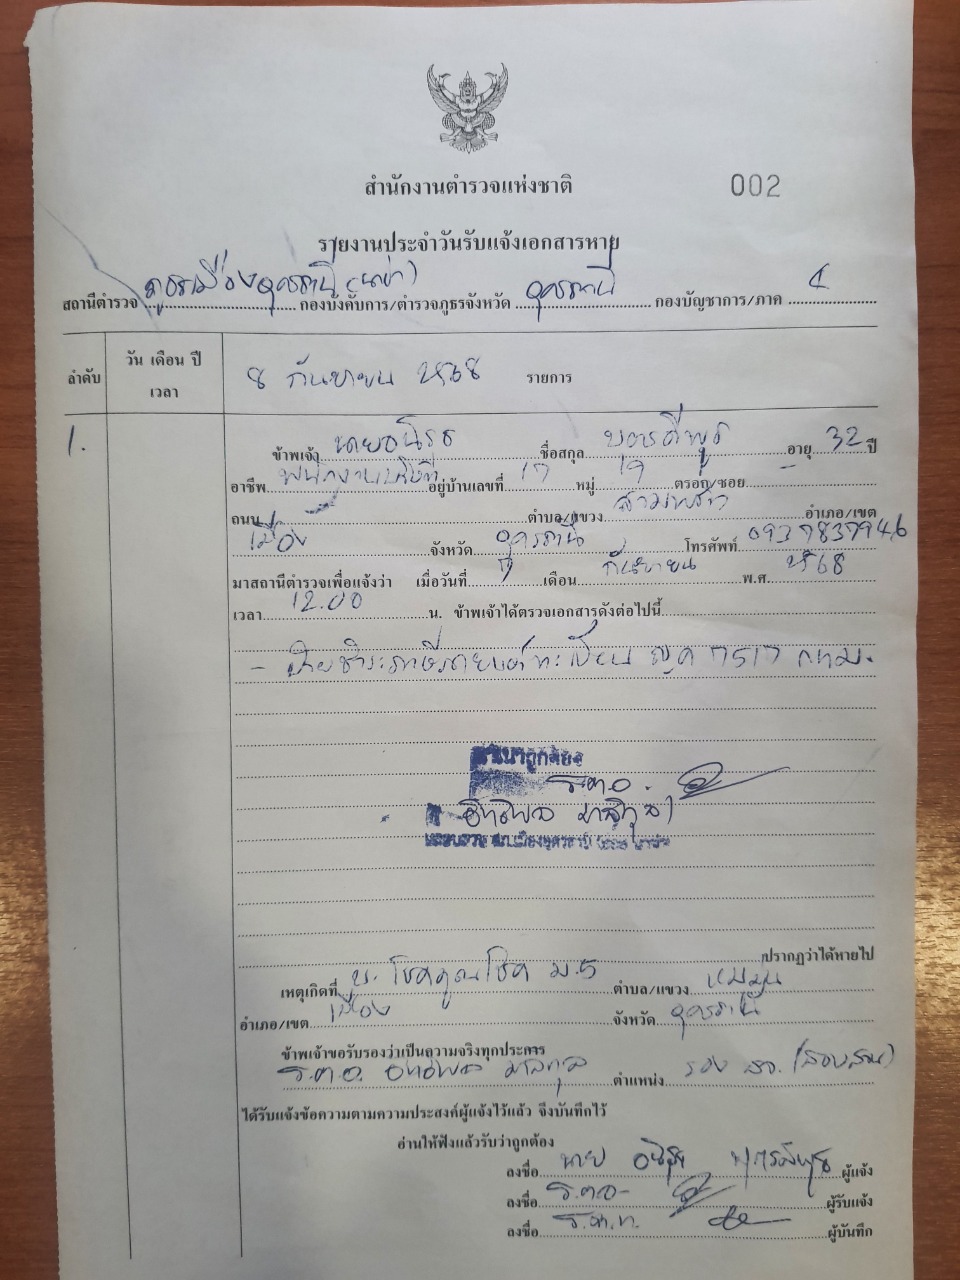 สำนักงานตำรวจแห่งชาติ
002
รายงานประจำวันรับแจ้งเอกสารหาย
สถานีตำรวจ ภูธรเมืองอุดรธานี กองบังคับการ/ตำรวจภูธรจังหวัด อุดรธานี กองบัญชาการ/ภาค 4
ลำดับ วัน เดือน ปี เวลา 8 กันยายน 2568 รายการ
1.
ข้าพเจ้า นาย ชื่อสกุล อายุ 32 ปี
อาชีพ พนักงานบริษัท อยู่บ้านเลขที่ 17 หมู่ 19 ตรอก/ซอย -
ถนน - ตำบล/แขวง สามพร้าว อำเภอ/เขต
เมือง จังหวัด อุดรธานี โทรศัพท์ 0937837946
มาสถานีตำรวจเพื่อแจ้งว่า เมื่อวันที่ เดือน กันยายน พ.ศ. 2568
เวลา 12.00 น. ข้าพเจ้าได้ตรวจเอกสารดังต่อไปนี้
- ป้ายชำระภาษีรถยนต์ทะเบียน กทม.
สำเนาถูกต้อง
ร.ต.อ.
ปรากฏว่าได้หายไป
เหตุเกิดที่ บ. โชคคูณโชค ม.5 ตำบล/แขวง หมูม่น
อำเภอ/เขต เมือง จังหวัด อุดรธานี
ข้าพเจ้าขอรับรองว่าเป็นความจริงทุกประการ
ร.ต.อ. ตำแหน่ง รอง สว.(สอบสวน)
ได้รับแจ้งข้อความตามความประสงค์ผู้แจ้งไว้แล้ว จึงบันทึกไว้
อ่านให้ฟังแล้วรับว่าถูกต้อง
ลงชื่อ นาย ผู้แจ้ง
ลงชื่อ ร.ต.อ. ผู้รับแจ้ง
ลงชื่อ ผู้บันทึก